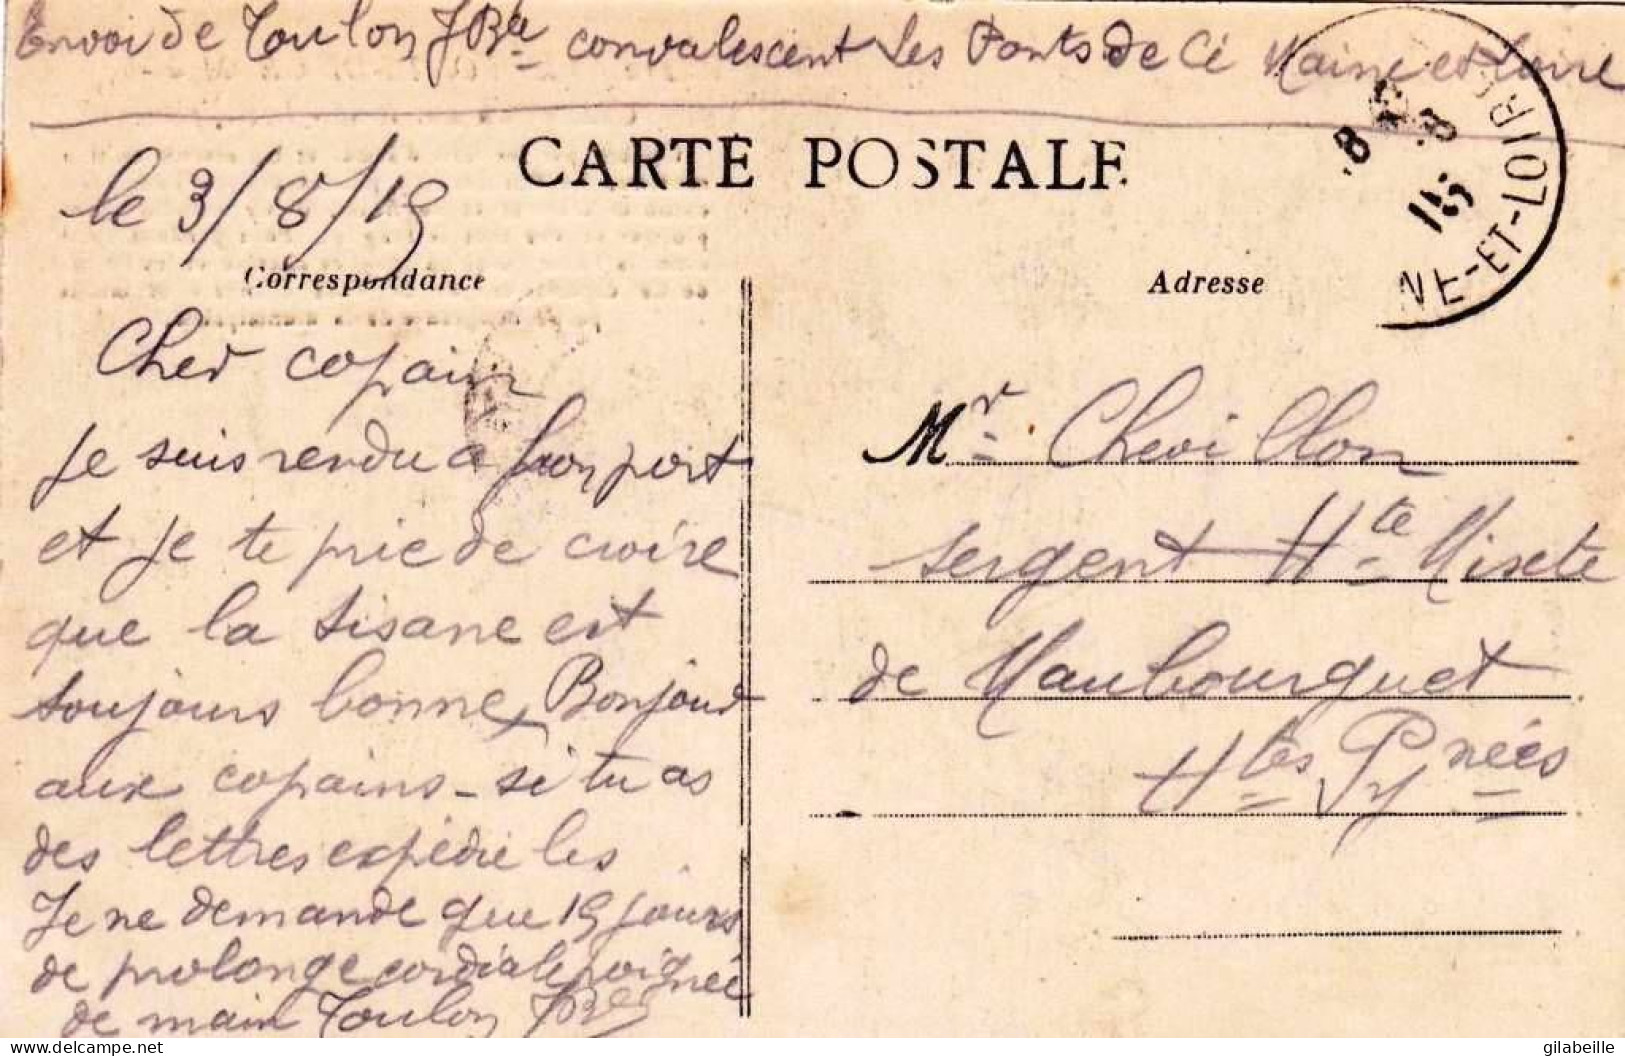 Envoi de Toulon JBte convalescent les Ponts de Cé Maine et Loire
CARTE POSTALE
le 3/8/15
Correspondance
Cher copain
Je suis rendu a bon port
et je te prie de croire
que la tisane est
toujours bonne, Bonjour
aux copains - si tu as
des lettres expédie les
Je ne demande que 15 jours
de prolonge cordiale poignée
de main Toulon JBte
Adresse
Mr Chevillon
sergent Hte Mixte
de Maubourguet
Htes Pynées
8 8 15
NE-ET-LOIR
gilabeille